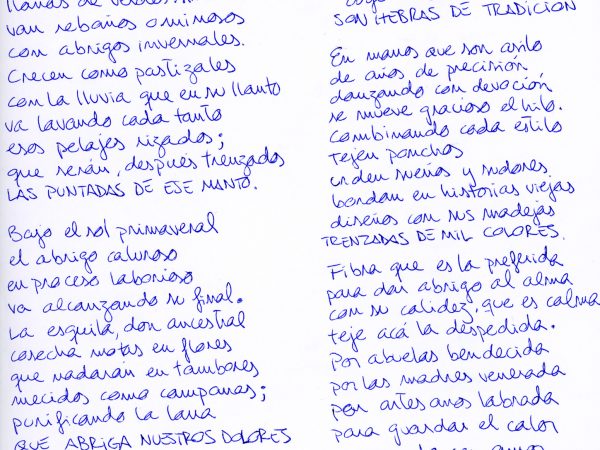 llanas de verdes
van rebaños ominosos
con abrigos invernales.
Crecen como pastizales
con la lluvia que en su llanto
va lavando cada tanto
esos pelajes rizados;
que serán, después trenzados
LAS PUNTADAS DE ESE MANTO.
Bajo el sol primaveral
el abrigo caluroso
en proceso laborioso
va alcanzando su final.
La esquila, don ancestral
cosecha motas en flores
que nadarán en tambores
mecidos como campanas;
purificando la lana
QUE ABRIGA NUESTROS DOLORES
SON HEBRAS DE TRADICIÓN
En manos que son asilo
de años de precisión
danzando con devoción
se mueve gracioso el hilo.
Combinando cada estilo
tejen ponchos
urden sueños y sudores
bordan en historias viejas
diseños con sus madejas
TRENZADAS DE MIL COLORES.
Fibra que es la preferida
para dar abrigo al alma
con su calidez, que es calma
teje acá la despedida.
Por abuelas bendecida
por las madres venerada
por artesanos labrada
para guardar el calor